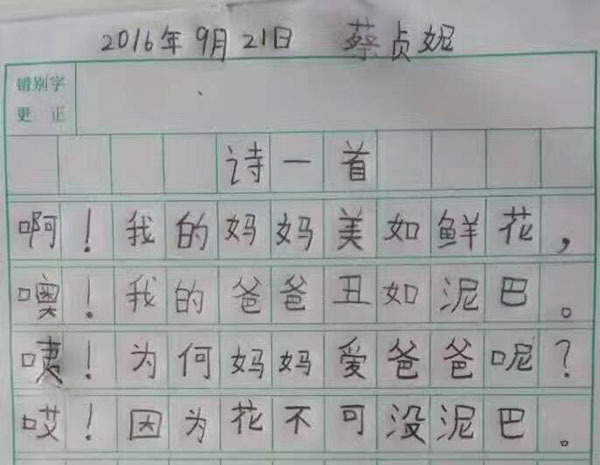 2016年9月21日 蔡贞妮
错别字
更 正
诗一首
啊！我的妈妈美如鲜花，
噢！我的爸爸丑如泥巴。
咦！为何妈妈爱爸爸呢？
哎！因为花不可没泥巴。